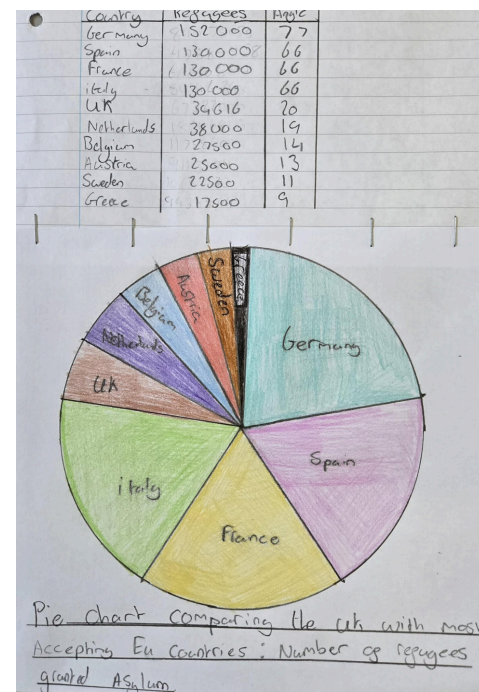 Country Refugees Angle
Germany 152000 77
Spain 130000 66
France 130000 66
italy 130000 66
UK 39616 20
Netherlands 38000 19
Belgium 27500 14
Austria 25000 13
Sweden 22500 11
Greece 17500 9
Greece
Sweden
Austria
Belgium
Germany
Netherlands
UK
Spain
italy
France
Pie chart comparing the uk with most
Accepting Eu Countries : Number of refugees
granted Asylum